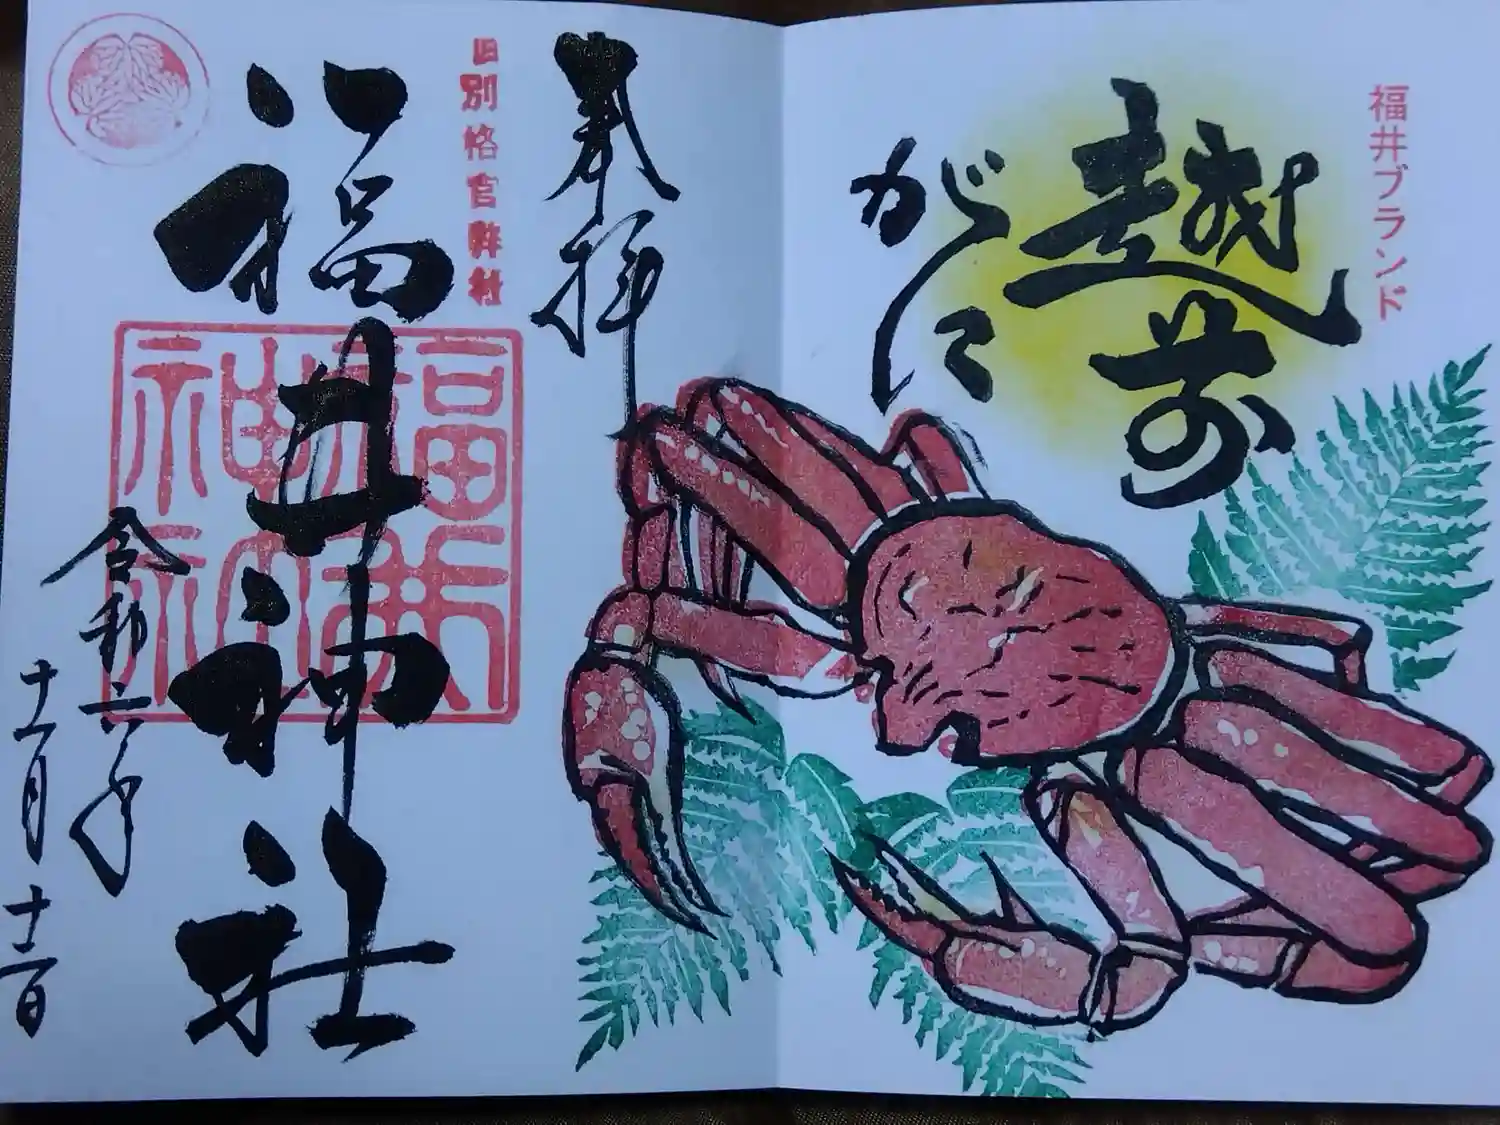 福井ブランド
越前
がに
奉拝
旧別格官幣社
福井神社
福井
神社
令和六年
十一月十一日